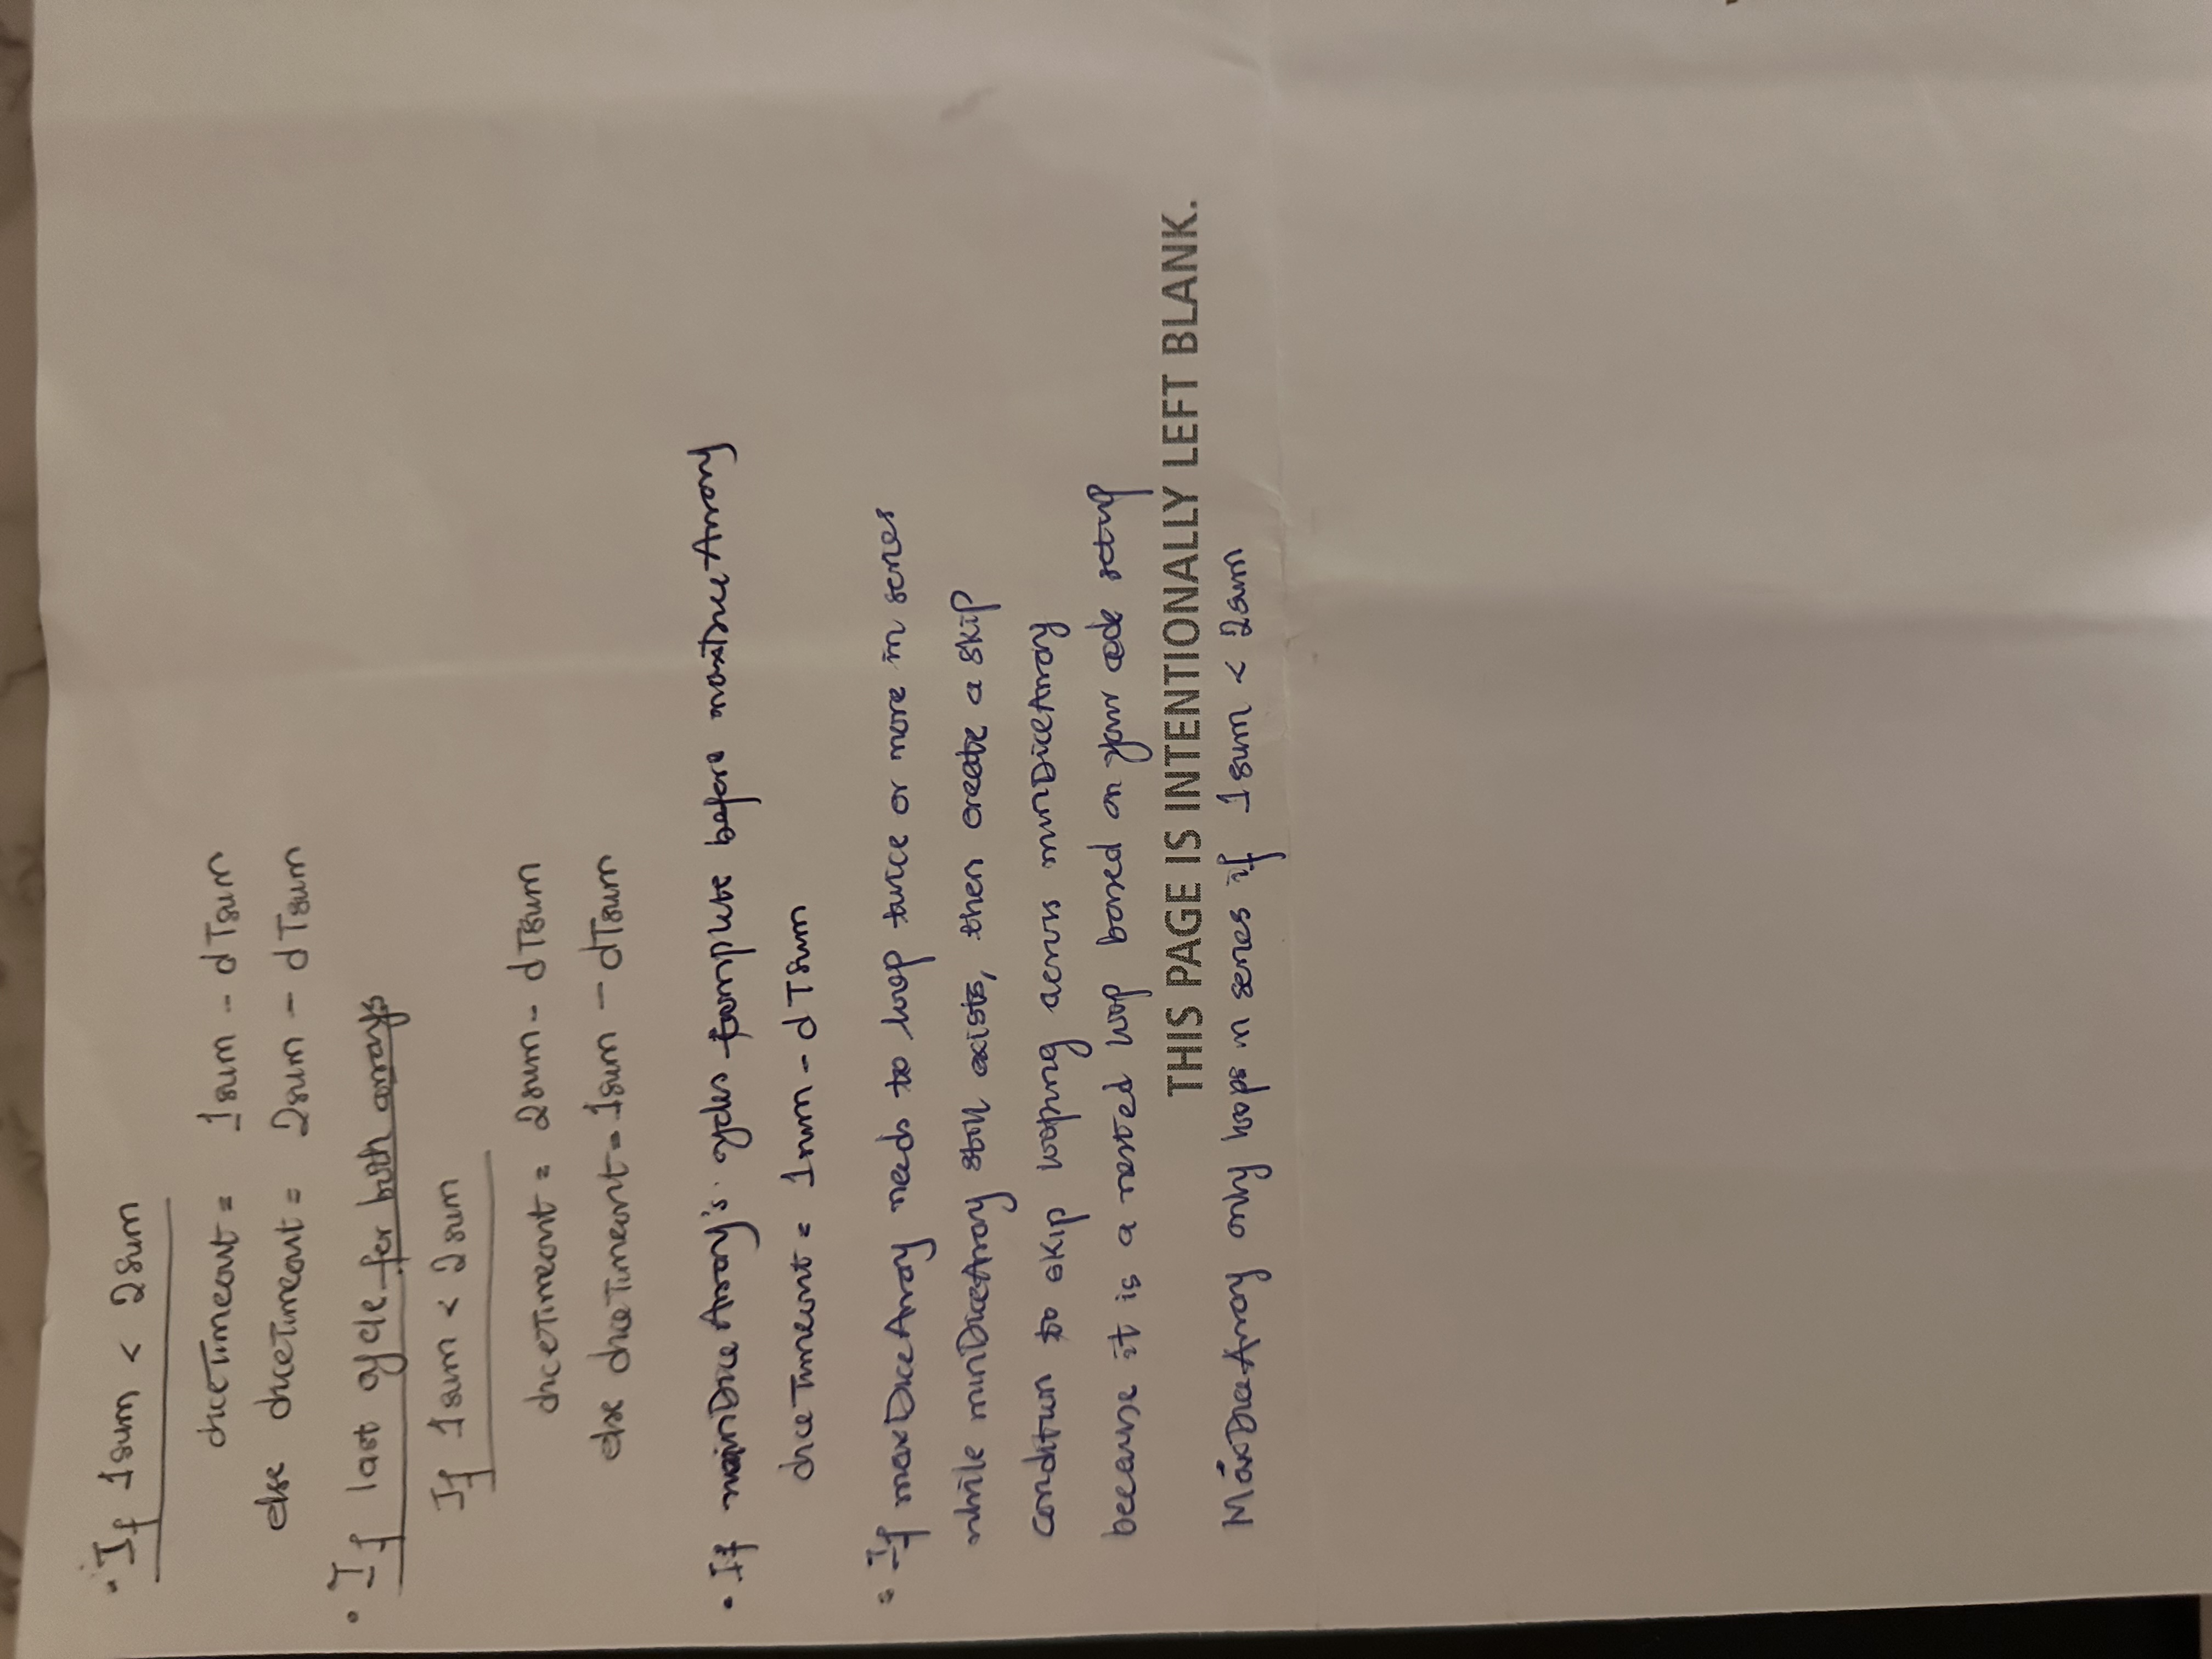 • If 1sum < 2sum
diceTimeout = 1sum - dTsum
else diceTimeout = 2sum - dTsum
• If last cycle for both arrays
If 1sum < 2sum
diceTimeout = 2sum - dTsum
else diceTimeout = 1sum - dTsum
• If minDiceArray's cycles complete before maxDiceArray
diceTimeout = 1sum - dTsum
• If maxDiceArray needs to loop twice or more in series
while minDiceArray still exists, then create a skip
condition to skip looping across minDiceArray
because it is a nested loop based on your code setup
THIS PAGE IS INTENTIONALLY LEFT BLANK.
MaxDiceArray only loops in series if 1sum < 2sum